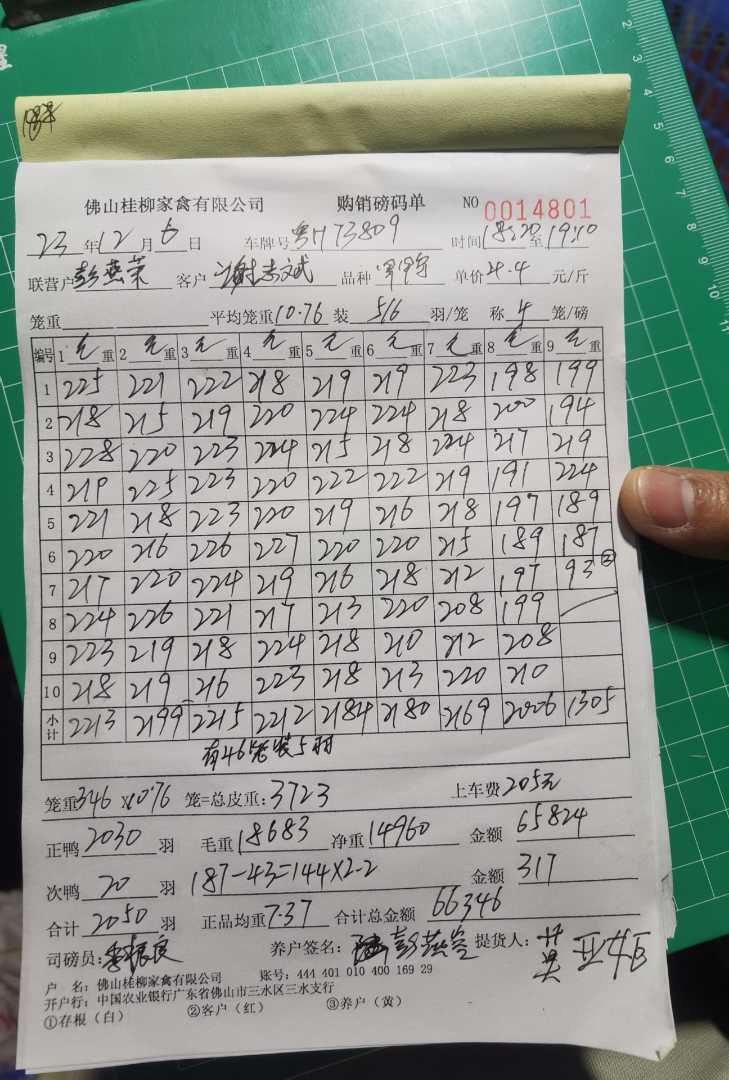 佛山桂柳家禽有限公司 购销磅码单 NO 0014801
23年12月6日 车牌号 粤H73809 时间18:20至19:10
联营户彭燕荣 客户 谢志斌 品种 单价4.4元/斤
笼重 平均笼重10.76 装 5/6 羽/笼 称 4 笼/磅
编号 1 毛重 2 毛重 3 毛重 4 毛重 5 毛重 6 毛重 7 毛重 8 毛重 9 毛重
1 225 221 222 218 219 219 223 198 199
2 218 215 219 220 224 224 218 200 194
3 228 220 223 224 215 218 224 217 219
4 219 225 223 220 222 222 219 191 224
5 221 218 223 220 219 216 218 197 189
6 220 216 226 227 220 220 215 189 187
7 217 220 224 219 216 218 212 197 93②
8 224 226 221 217 213 220 208 199
9 223 219 218 224 218 210 212 208
10 218 219 216 223 218 213 220 210
小计 2213 2199 2215 2212 2184 2180 2169 2006 1305
有46笼装5羽
笼重346×10.76 笼=总皮重:3723 上车费205元
正鸭2030羽 毛重18683 净重14960 金额 65824
次鸭 20 羽 187-43=144×2-2 金额 317
合计2050羽 正品均重7.37 合计总金额 66346
司磅员: 养户签名: 彭燕 提货人:
户 名:佛山桂柳家禽有限公司 账号:444 401 010 400 169 29
开户行:中国农业银行广东省佛山市三水区三水支行
①存根(白) ②客户(红) ③养户(黄)
2
3
4
5
6
7
8
9
10
11